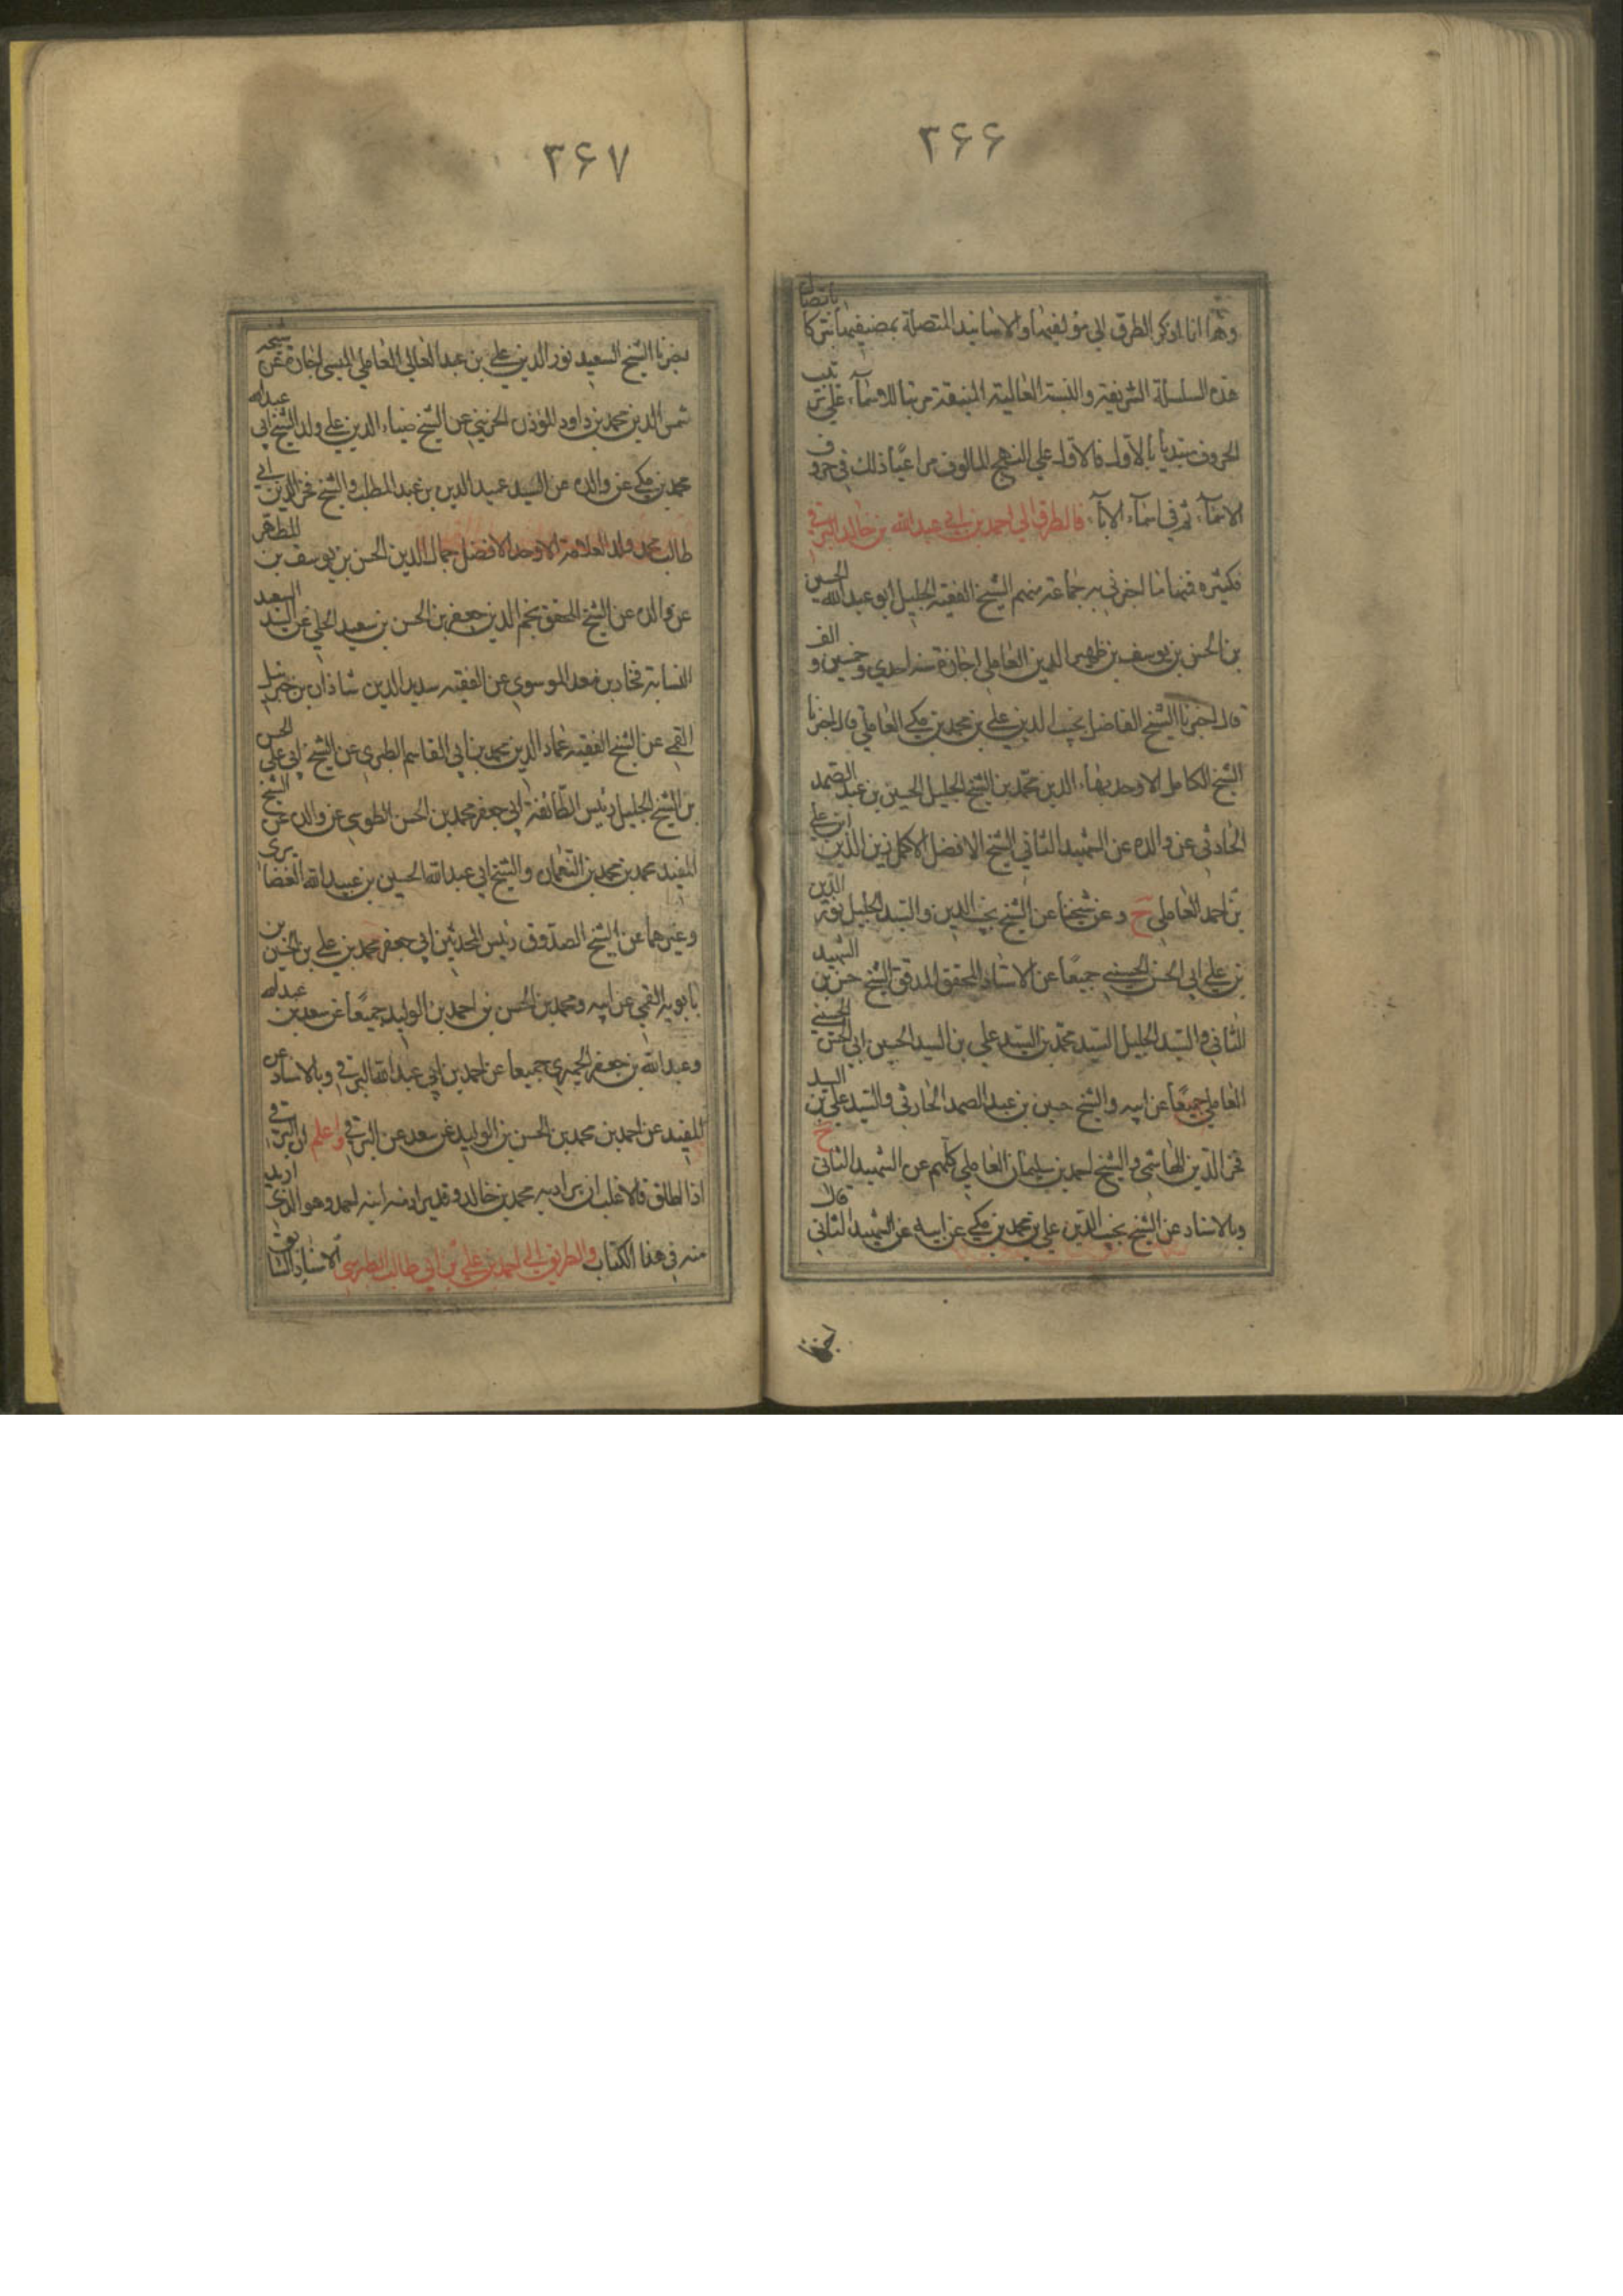 ۳۶۶
وها انا اذكر الطرق الى مؤلفيها والاسانيد المتصلة بمصنفيها تبركا باتصال
هذه السلسلة الشريفة والنسبة العالية المنيفة مرتبا للاسماء على ترتيب
الحروف مبتديا بالاول فالاول على النهج المالوف مراعيا ذلك في حروف
الاسماء ثم في اسماء الاباء فالطرق الى احمد بن ابي عبد الله بن خالد البرقي
كثيره فمنها ما اخبرني به جماعة منهم الشيخ الفقيه الجليل ابو عبد الله الحسين
بن الحسن بن يوسف بن ظهير الدين العاملي اجازة سنه احدى وخمسين والف
قال اخبرنا الشيخ الفاضل نجيب الدين علي بن محمد بن مكي العاملي قال اخبرنا
الشيخ الكامل الاوحد بهاء الدين محمد بن الشيخ الجليل الحسين بن عبد الصمد
الحارثي عن والده عن الشهيد الثاني الشيخ الافضل الاكمل زين الدين ابن علي
بن احمد العاملي ح وعن شيخنا عن الشيخ نجيب الدين والسيد الجليل نور الدين
بن علي ابي الحسن الحسيني جميعا عن الاستاذ المحقق المدقق الشيخ حسن بن الشهيد
الثاني والسيد الجليل السيد محمد بن السيد علي بن السيد الحسين ابي الحسن الحسيني
العاملي جميعا عن ابيه والشيخ حسين بن عبد الصمد الحارثي والسيد علي بن السيد
فخر الدين الهاشمي والشيخ احمد بن سليمان العاملي كلهم عن الشهيد الثاني ح
وبالاسناد عن الشيخ نجيب الدين علي بن محمد بن مكي عن ابيه عن الشهيد الثاني قال
اخبرنا
۳۶۷
اخبرنا الشيخ السعيد نور الدين علي بن عبد العالي العاملي الميسي اجازة عن شيخه
شمس الدين محمد بن داود المؤذن الجزيني عن الشيخ ضياء الدين علي ولد الشيخ ابي عبد الله
محمد بن مكي عن والده عن السيد عميد الدين بن عبد المطلب والشيخ فخر الدين ابي
طالب محمد ولد العلامة الاوحد الافضل جمال الدين الحسن بن يوسف بن المطهر
عن والده عن الشيخ المحقق نجم الدين جعفر بن الحسن بن سعيد الحلي عن السيد السعيد
النسابة فخار بن معد الموسوي عن الفقيه سديد الدين شاذان بن جبرئيل
القمي عن الشيخ الفقيه عماد الدين محمد بن ابي القاسم الطبري عن الشيخ ابي علي الحسن
بن الشيخ الجليل رئيس الطائفة ابي جعفر محمد بن الحسن الطوسي عن والده عن الشيخ
المفيد محمد بن محمد بن النعمان والشيخ ابي عبد الله الحسين بن عبيد الله الغضايرى
وغيرهما عن الشيخ الصدوق رئيس المحدثين ابي جعفر محمد بن علي بن الحسين بن
بابويه القمي عن ابيه ومحمد بن الحسن بن احمد بن الوليد جميعا عن سعد بن عبد الله
وعبد الله بن جعفر الحميري جميعا عن احمد بن ابي عبد الله البرقي وبالاسناد عن
المفيد عن احمد بن محمد بن الحسن بن الوليد عن سعد عن البرقي واعلم ان البرقي
اذا اطلق فالاغلب ان يراد به محمد بن خالد وقد يراد منه ابنه احمد وهو الذي اريد
منه في هذا الكتاب والطريق الى احمد بن علي بن ابي طالب الطبرسي الاسناد السابق